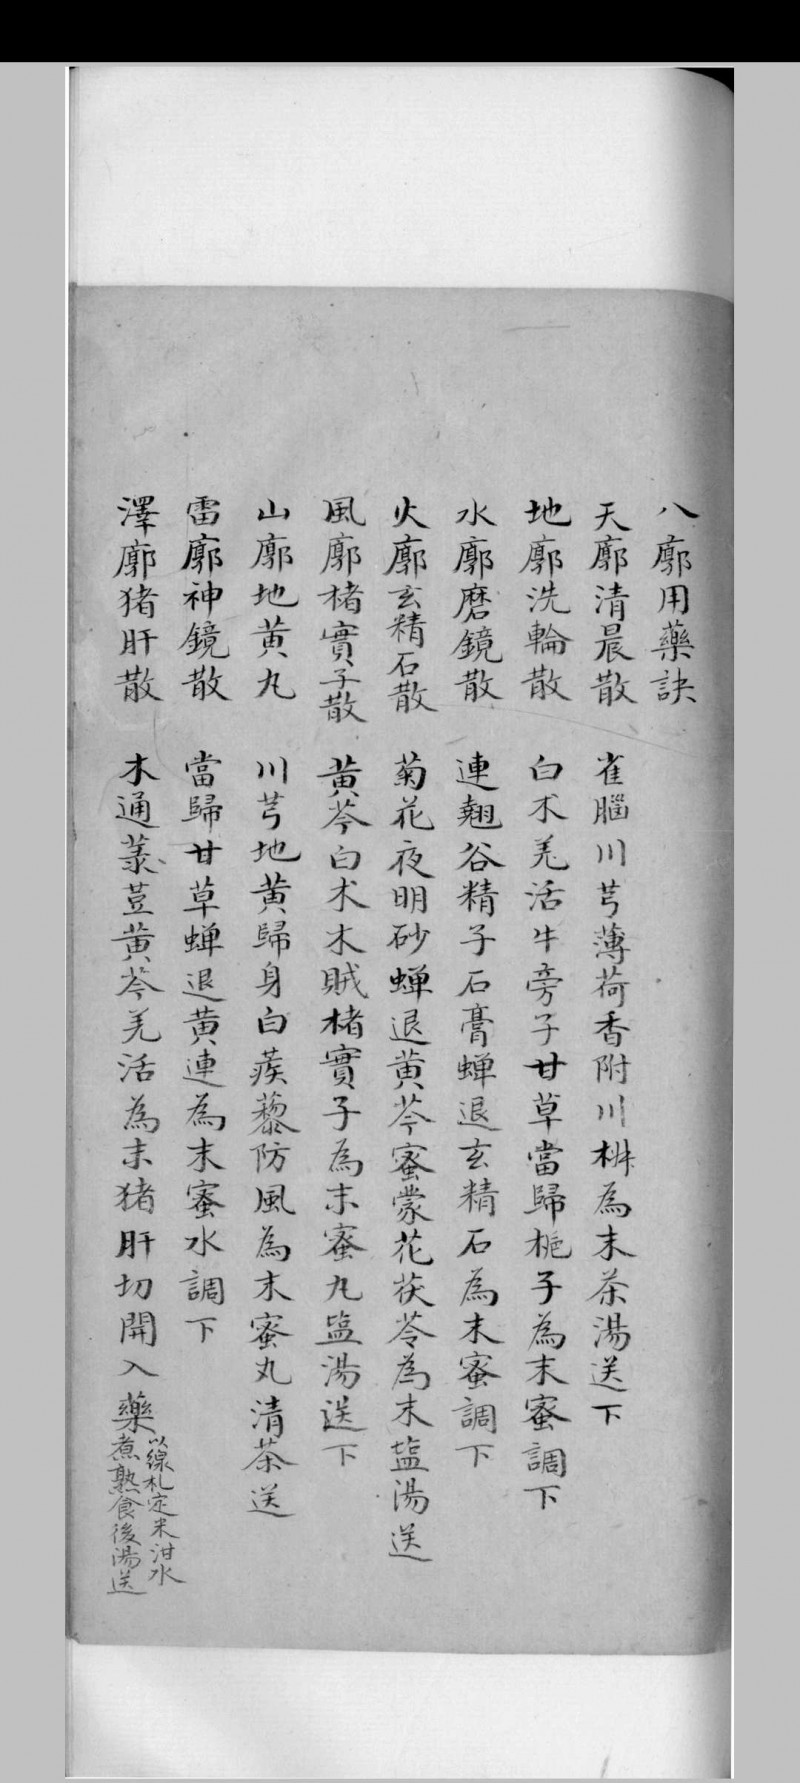 八廓用藥訣
天廓清晨散 雀腦川芎薄荷香附川椒為末茶湯送下
地廓洗輪散 白术羌活牛旁子甘草當歸梔子為末蜜調下
水廓磨鏡散 連翹谷精子石膏蟬退玄精石為末蜜調下
火廓玄精石散 菊花夜明砂蟬退黄芩蜜蒙花茯苓為末塩湯送
風廓楮實子散 黄芩白术木賊楮實子為末蜜丸塩湯送下
山廓地黄丸 川芎地黄歸身白蒺藜防風為末蜜丸清茶送
雷廓神鏡散 當歸甘草蟬退黄連為末蜜水調下
澤廓猪肝散 木通荳黄芩羌活為末猪肝切開入藥
以線札定米泔水
煮熟食後湯送